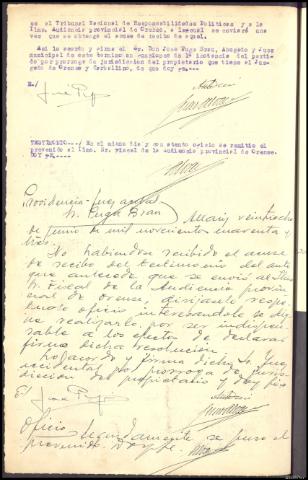 se al Tribunal Nacional de Responsabilidades Políticas y a la
Ilma. Audiencia provincial de Orense, a la cual se enviará una
vez que se obtenga el acuse de recibo de aquel.
Así lo acordó y firma el Sr. Don José Puga Bran, Abogado y Juez
municipal de este término en funciones de 1ª instancia del partido
por prorroga de jurisdicción del propietario que tiene el Juzgado
de Orense y Carballino, de que doy fe.-----
E/
José Puga
TESTIMONIO.-- En el mismo dia y con atento oficio se remitio el
prevenido al Ilmo. Sr. Fiscal de la Audiencia provincial de Orense.
DOY FE.----
Providencia-Juez accptal
Sr. Puga Bran
veintiocho
de junio de mil novecientos cuarenta y
tres.
No habiendose recibido el acuse
de recibo del testimonio del auto
que antecede que se envió al Ilmo
Sr. Fiscal de la Audiencia provin
cial de Orense, dirijasele respe
tuoso oficio interesandole se dig
ne realizarlo, por ser indispen
sable a los efectos de declarar
firme dicha resolución.
Lo acordó y firma dicho Sr. Juez
accidental por prorroga de juris
dicción del propietario y doy fe
E/ José Puga
Oficio Seguidamente se puso el
prevenido. Doy fe.